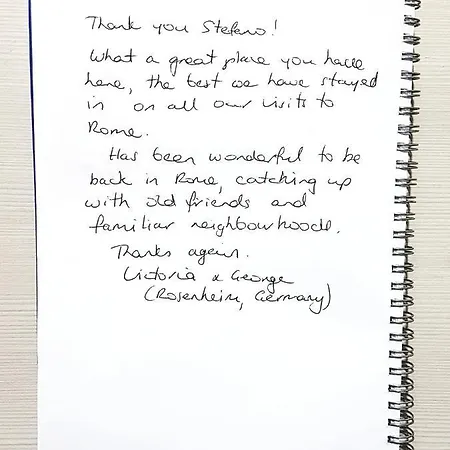 Thank you Stefano!
What a great place you have
here, the best we have stayed
in on all our visits to
Rome.
Has been wonderful to be
back in Rome, catching up
with old friends and
familiar neighbourhoods.
Thanks again.
Victoria & George
(Rosenheim, Germany)